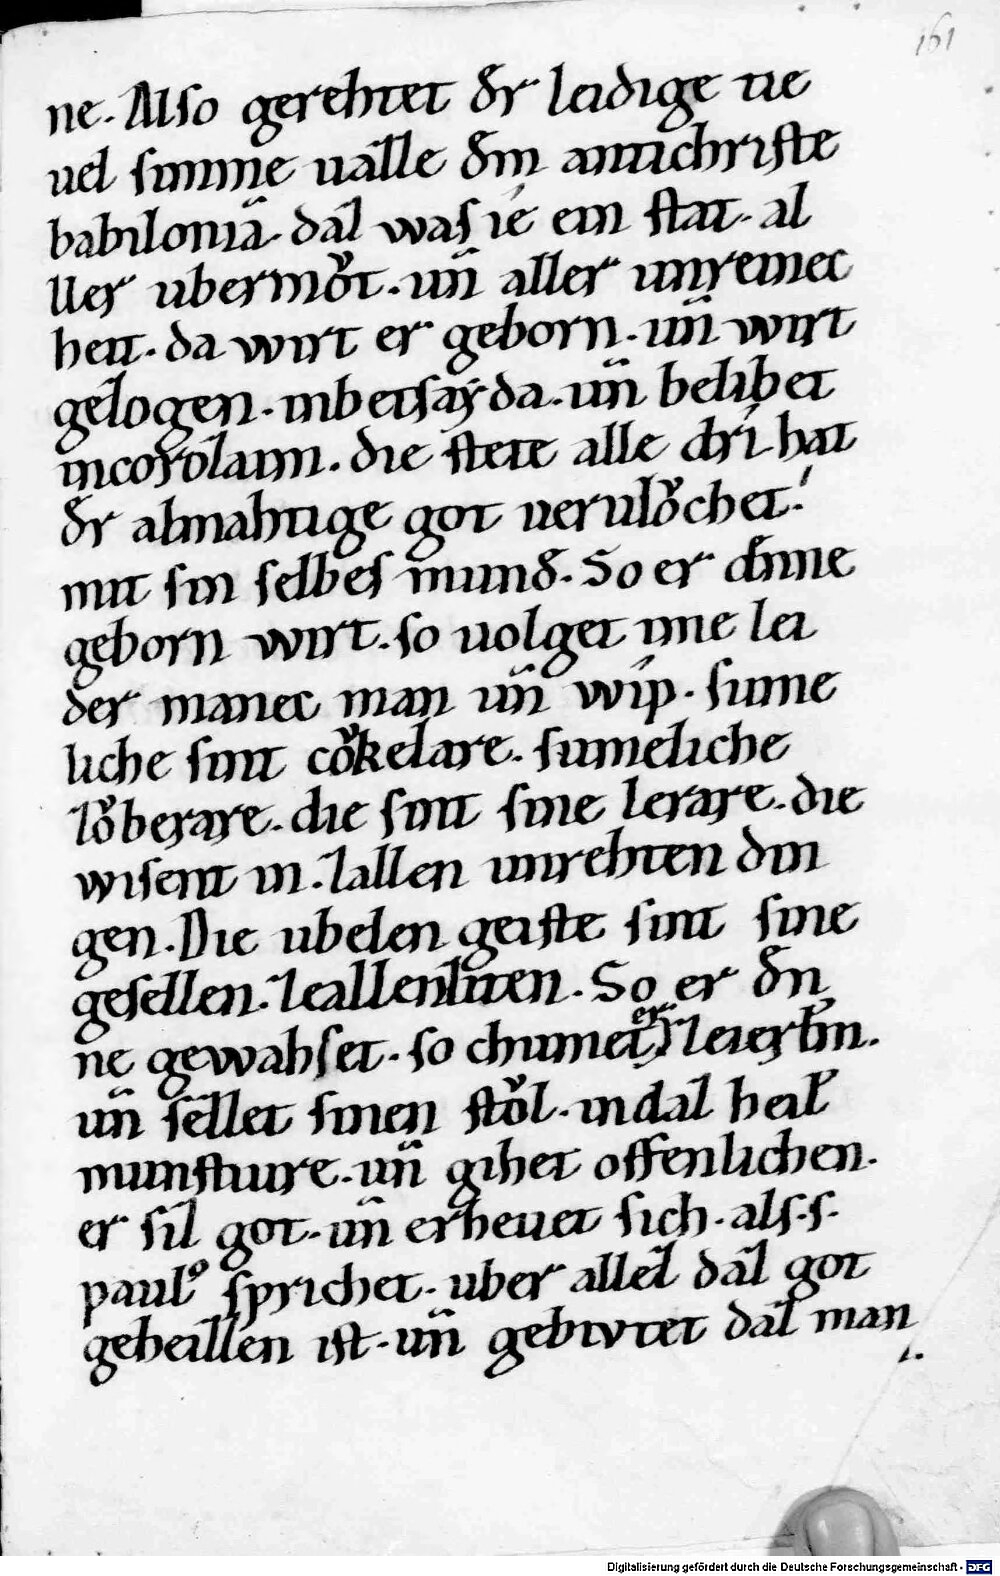 161
ne. Also gerehtet dr̄ leidige tie
uel simme uàlle dē in antichriste
babiloniā. daz was ie ein stat. al
ller ubermv̊t. un̄ aller unreinec
heit. da wirt er geborn. un̄ wirt
gezogen. inbetsaẏda. un̄ belibet
incorozaim. die stete alle drí hat
dr̄ almahtige got ueruluͦchet.
mit sin selbes mund̄. So er dēnne
geborn wirt. so uolget ime lei
der manec man un̄ wíp. sume
liche sint coͮkelare. sumeliche
zoͮberare. die sint sine lerare. die
wisent in. zallen unrehten din
gen. Die ubelen geiste sint sine
gesellen. zeallenziten. So er dēn
ne gewahset. so chumet er zeierl̄m.
un̄ sezzet sinen stuͦl. indaz heil̄
munstiure. un̄ gihet offenlichen.
er siz got. un̄ erheuet sich. als. s.
paulꝰ sprichet. uber allez daz got
geheizzen ist. un̄ gebivtet daz man
Digitalisierung gefördert durch die Deutsche Forschungsgemeinschaft - DFG